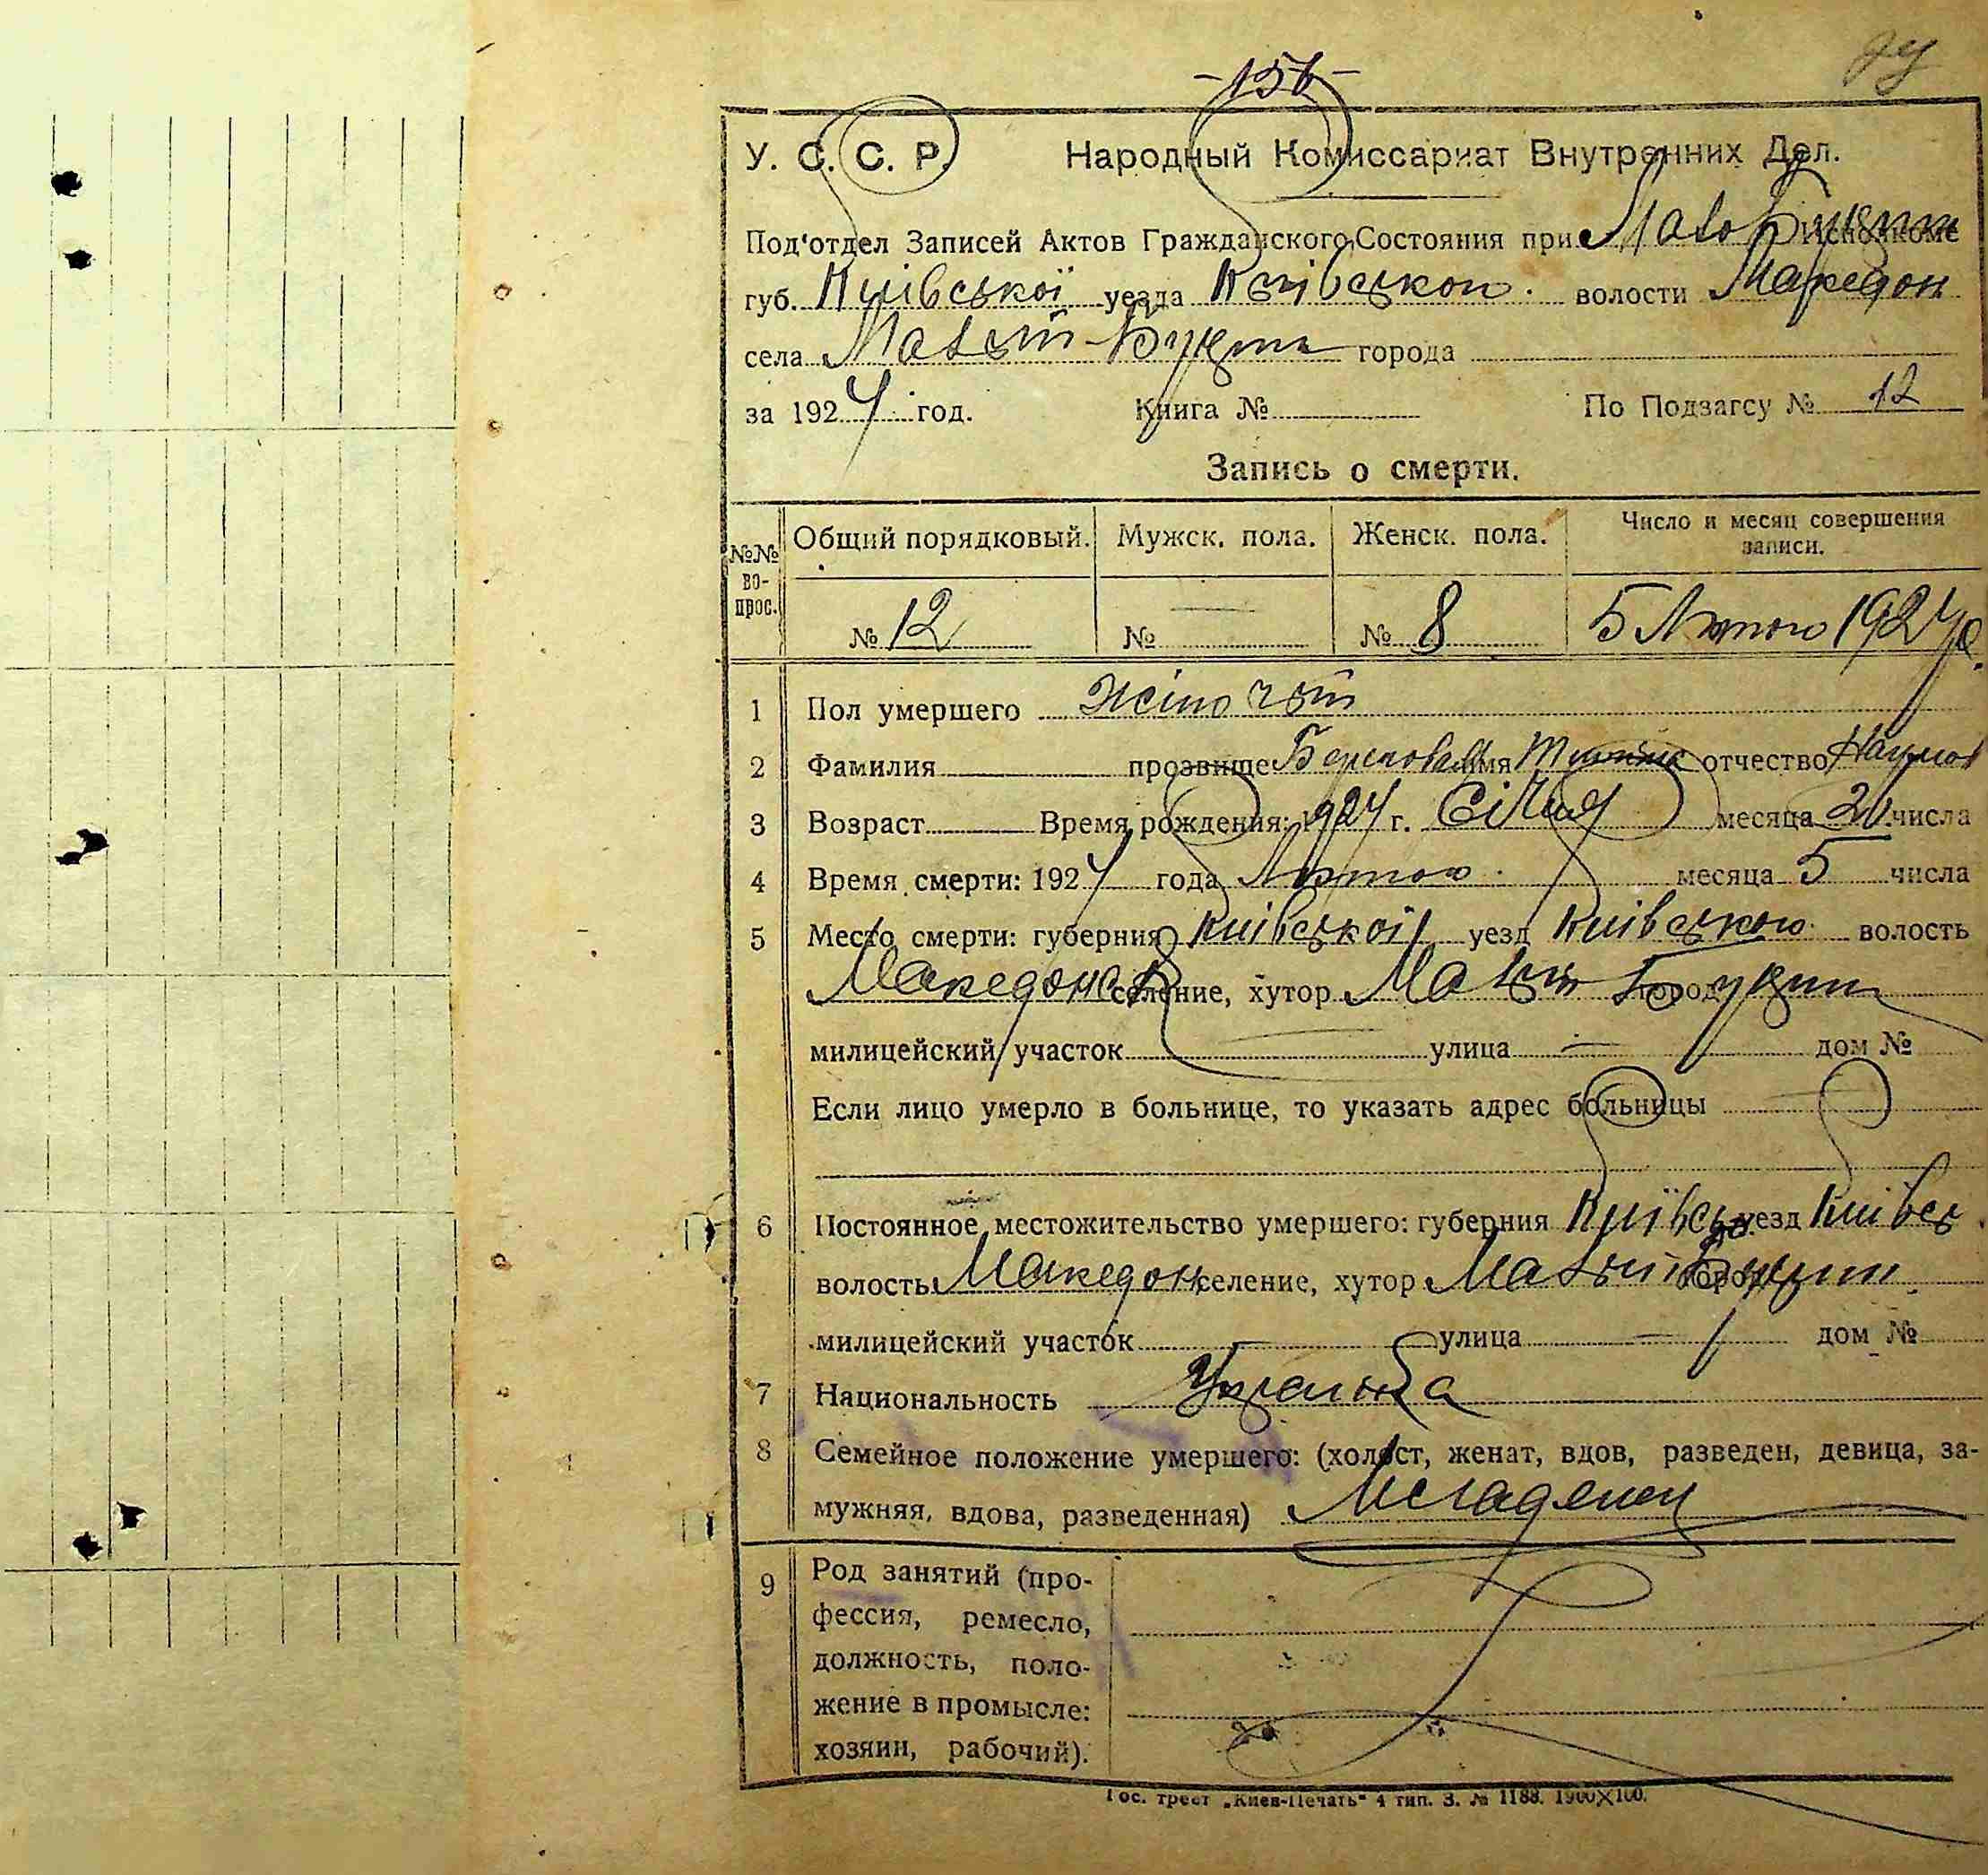 -156-
У. С. С. Р. Народный Комиссариат Внутренних Дел.
Под'отдел Записей Актов Гражданского Состояния при Мало Букрин Исполкоме
губ. Київської уезда Київского волости Македон
села Малый-Букрин города
за 1924 год. Книга № По Подзагсу № 12
Запись о смерти.
№№ вопрос. Общий порядковый. Мужск. пола. Женск. пола. Число и месяц совершения записи.
№ 12 № — № 8 5 Лютого 1924 р.
1 Пол умершего Жіночый
2 Фамилия прозвище имя отчество Наумов
3 Возраст Время рождения: 1924 г. Січня месяца 20 числа
4 Время смерти: 1924 года Лютого месяца 5 числа
5 Место смерти: губерния Київської уезд Київского волость
Македонск селение, хутор Малый Букрин город
милицейский участок улица — дом №
Если лицо умерло в больнице, то указать адрес больницы
6 Постоянное местожительство умершего: губерния Київськ уезд Київськ
волость Македон селение, хутор Малый Букрин город
милицейский участок улица — дом №
7 Национальность Українка
8 Семейное положение умершего: (холост, женат, вдов, разведен, девица, за-
мужняя, вдова, разведенная) Младенец
9 Род занятий (про-
фессия, ремесло,
должность, поло-
жение в промысле:
хозяин, рабочий).
Гос. трест „Киев-Печать" 4 тип. З. № 1188. 1900×100.